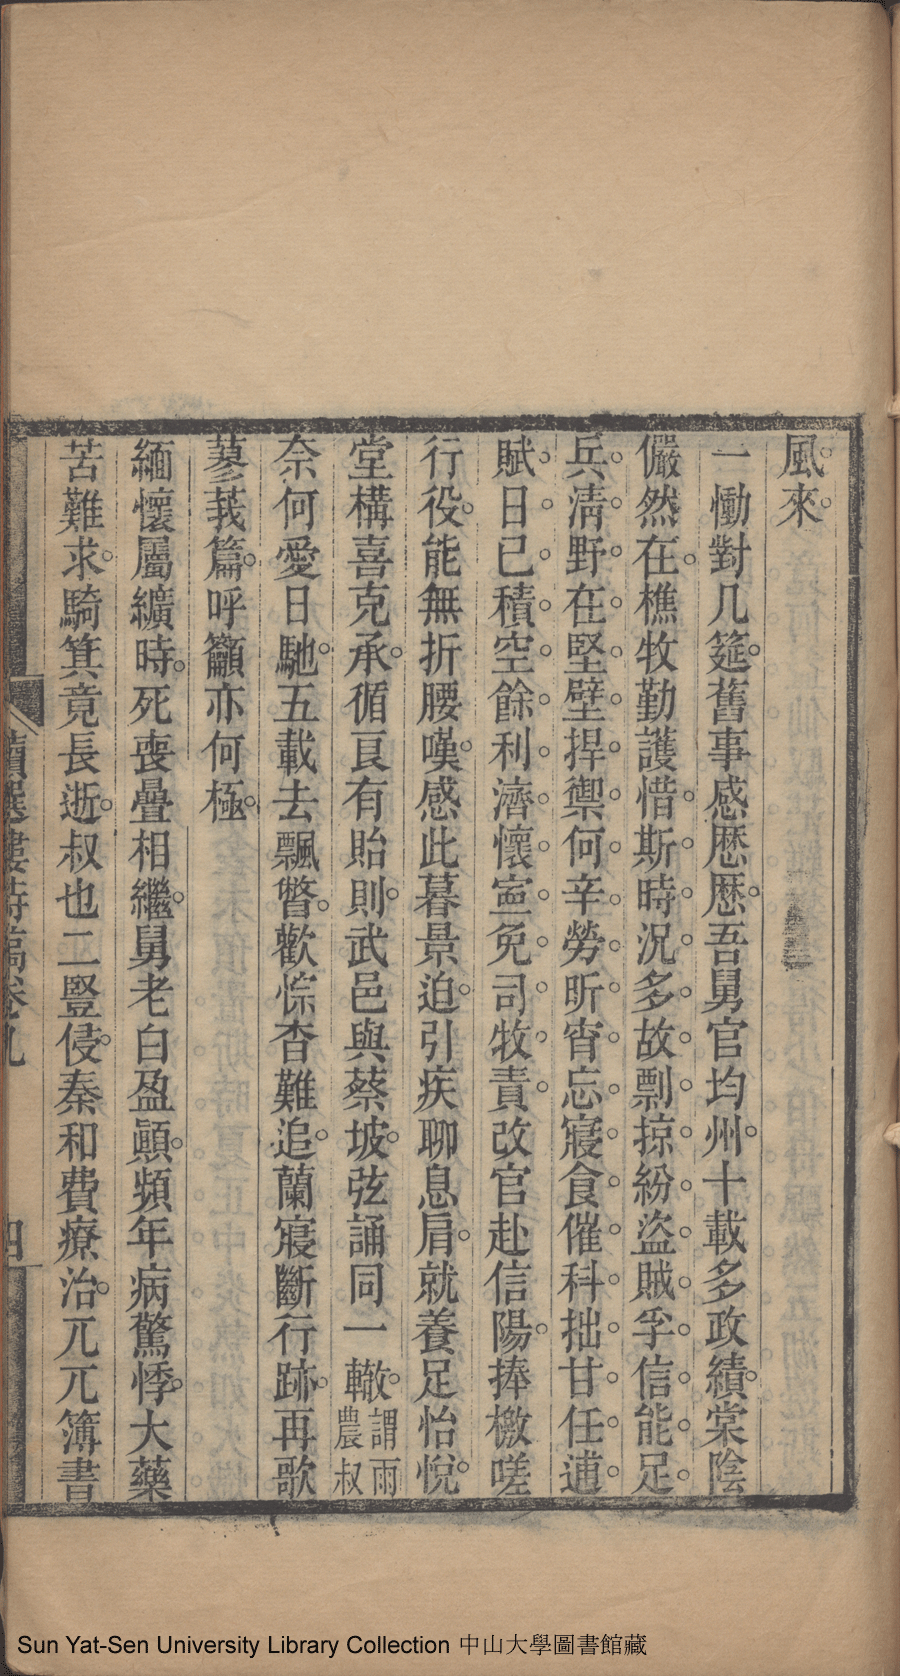 風來
一慟對几筵舊事感歷歷吾舅官均州十載多政績棠陰
儼然在樵牧勤護惜斯時況多故剽掠紛盜賊孚信能足
兵淸野在堅壁捍禦何辛勞昕宵忘寢食催科拙甘任逋
賦日已積空餘利濟懷寔免司牧責改官赴信陽捧檄嗟
行役能無折腰嘆感此暮景迫引疾聊息肩就養足怡悅
堂構喜克承循良有貽則武邑與蔡坡弦誦同一轍謂雨農叔
奈何愛日馳五載去飄瞥歡悰杳難追蘭寢斷行跡再歌
蓼莪篇呼籲亦何極
緬懷屬纊時死喪曡相繼舅老白盈顚頻年病驚悸大藥
苦難求騎箕竟長逝叔也二豎侵秦和費療治兀兀簿書
讀選樓詩稿卷九
四
Sun Yat-Sen University Library Collection 中山大學圖書館藏